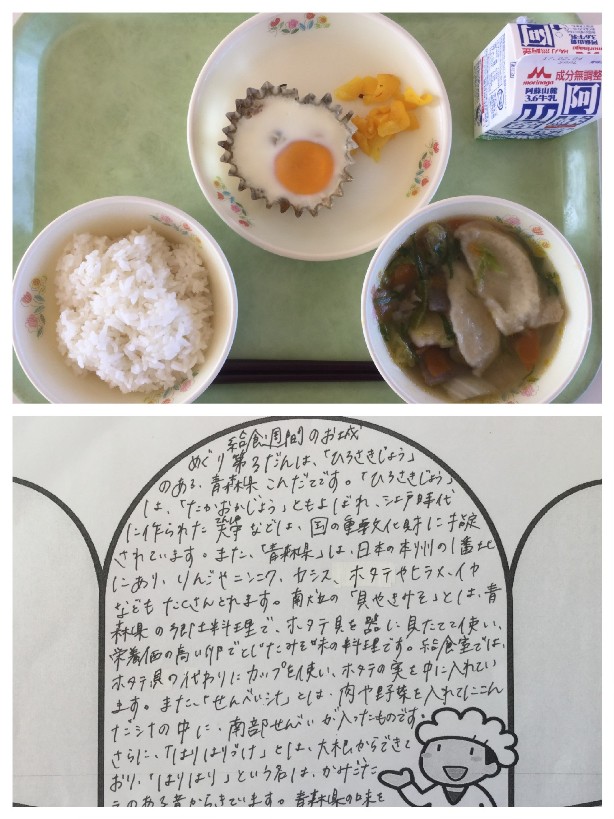 阿
成分無調整
morinaga
阿蘇山麓
3.6牛乳
給食週間のお城
めぐり第3だんは、「ひろさきじょう」
のある、青森県こんだてです。「ひろさきじょう」
は、「たかおかじょう」ともよばれ、江戸時代
に作られた天守などは、国の重要文化財に指定
されています。また、「青森県」は、日本の本州の1番北
にあり、りんごやニンニク、カシス、ホタテやヒラメ、イカ
などもたくさんとれます。献立の「貝やきみそ」とは、青
森県の郷土料理で、ホタテ貝を器に見たてて使い、
栄養価の高い卵でとじたみそ味の料理です。給食室では、
ホタテ貝の代わりにカップを使い、ホタテの実を中に入れてい
ます。また、「せんべい汁」とは、肉や野菜を入れてにこん
だ汁の中に、南部せんべいが入ったものです。
さらに、「はりはりづけ」とは、大根からできて
おり、「はりはり」という名は、かみごた
えのある音からきています。青森県の味を